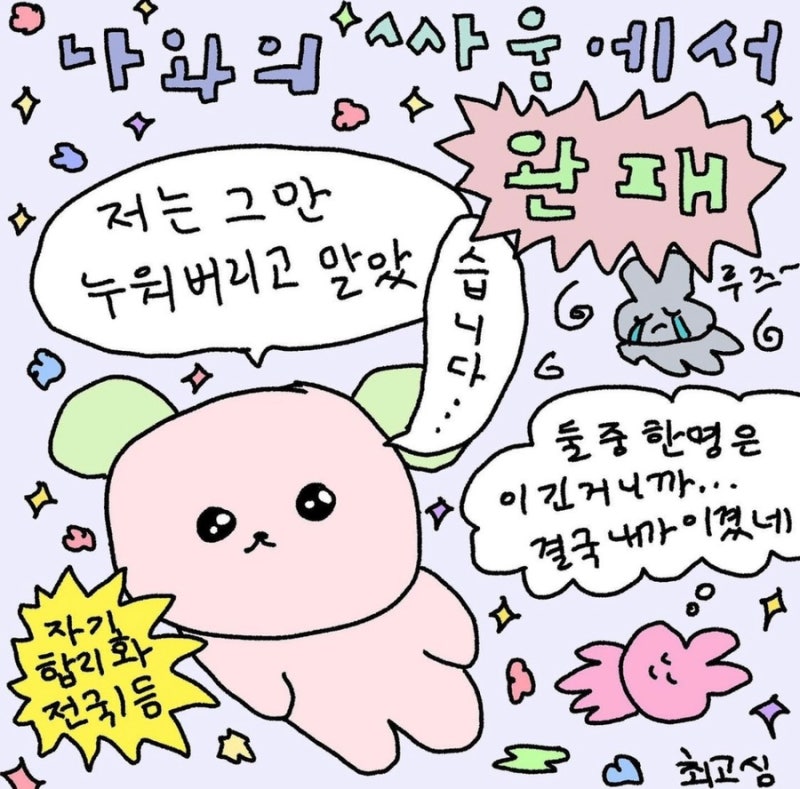 나와의 싸움에서
완패
저는 그만
누워버리고 말았
습니다...
루즈~
둘 중 한명은
이긴거니까...
결국 내가 이겼네
자기
합리화
전국1등
최고심